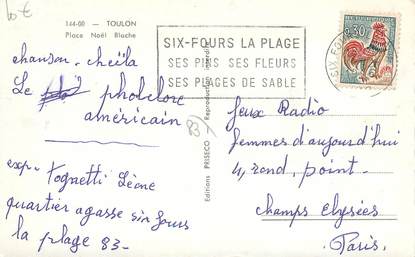 10€
144-00 — TOULON
Place Noël Blache
SIX-FOURS LA PLAGE
SES PINS SES FLEURS
SES PLAGES DE SABLE
0,30
SIX FOU
chanson - cheïla
Le pholclore
américain
exp- Tognetti Léone
quartier agasse six fours
la plage 83-
Editions PRISECO - Reproduction interdite
83)
Jeux Radio
femmes d'aujourd'hui
4, rond, point-
champs Elysées
Paris.